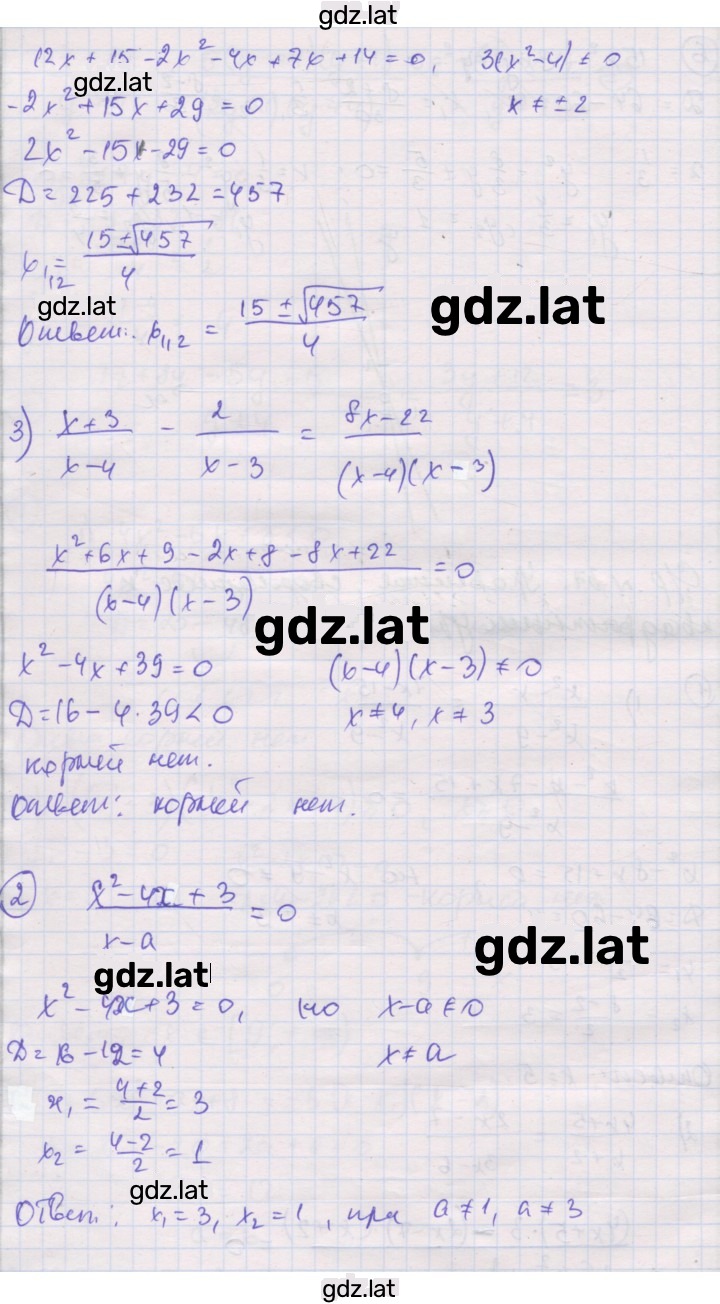 gdz.lat
12x + 15 - 2x² - 4x + 7x + 14 = 0, 3(x² - 4) ≠ 0
gdz.lat
-2x² + 15x + 29 = 0 x ≠ ± 2
2x² - 15x - 29 = 0
D = 225 + 232 = 457
x₁,₂ = (15 ± √457)/4
gdz.lat
gdz.lat
Ответ: x₁,₂ = (15 ± √457)/4
3) (x+3)/(x-4) - 2/(x-3) = (8x-22)/((x-4)(x-3))
(x² + 6x + 9 - 2x + 8 - 8x + 22)/((x-4)(x-3)) = 0
gdz.lat
x² - 4x + 39 = 0 (x-4)(x-3) ≠ 0
D = 16 - 4·39 < 0 x ≠ 4, x ≠ 3
корней нет.
Ответ: корней нет.
2 (x² - 4x + 3)/(x-a) = 0
gdz.lat
gdz.lat
x² - 4x + 3 = 0, но x-a ≠ 0
D = 16 - 12 = 4 x ≠ a
x₁ = (4+2)/2 = 3
x₂ = (4-2)/2 = 1
gdz.lat
Ответ: x₁ = 3, x₂ = 1, при a ≠ 1, a ≠ 3
gdz.lat